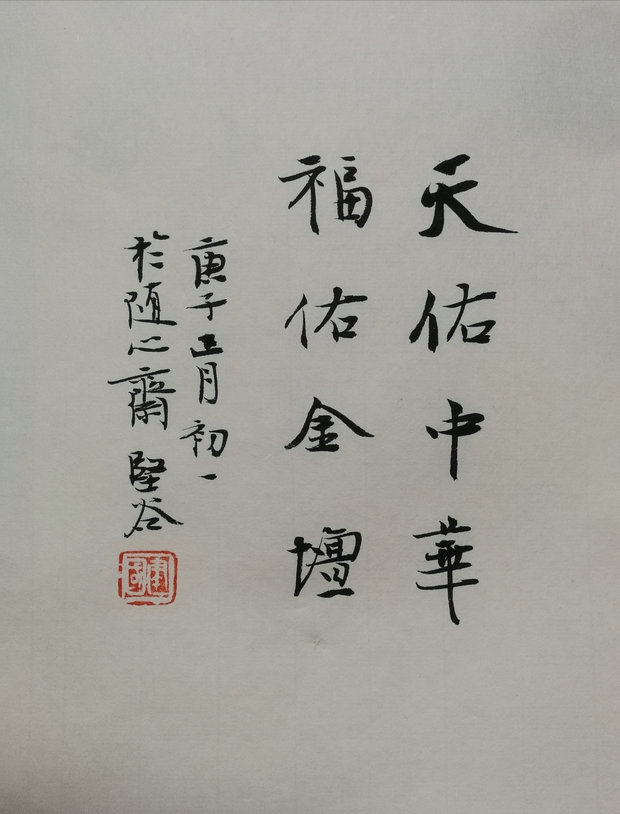 天佑中華
福佑金壇
庚子正月初一
於随心齋堅谷
建國